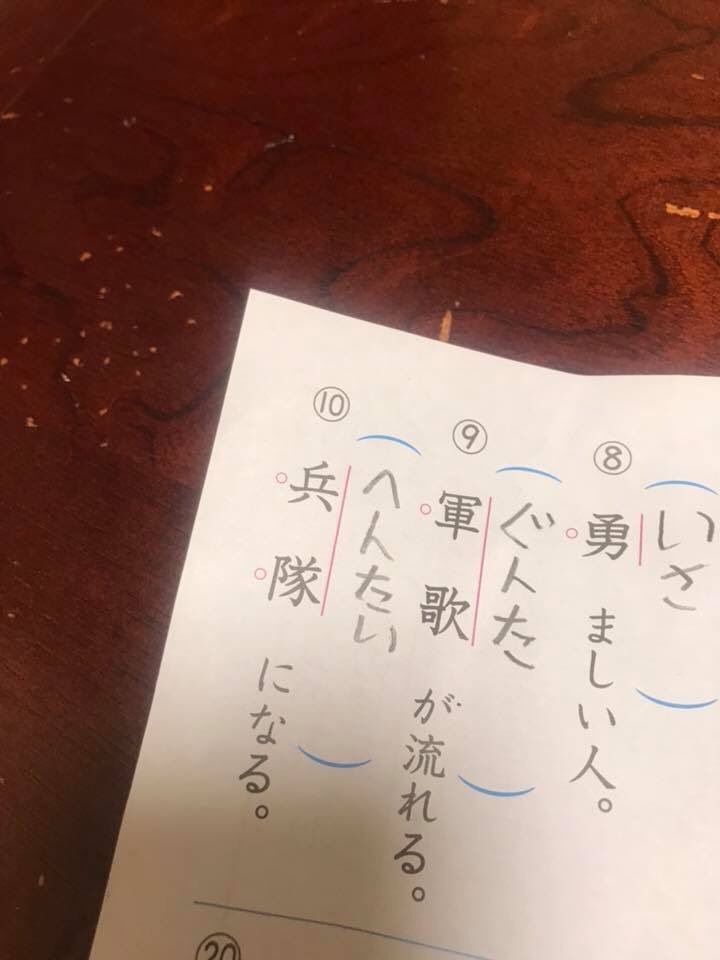 ⑧
いさ
勇ましい人。
⑨
ぐんた
軍歌が流れる。
⑩
へんたい
兵隊になる。
⑳